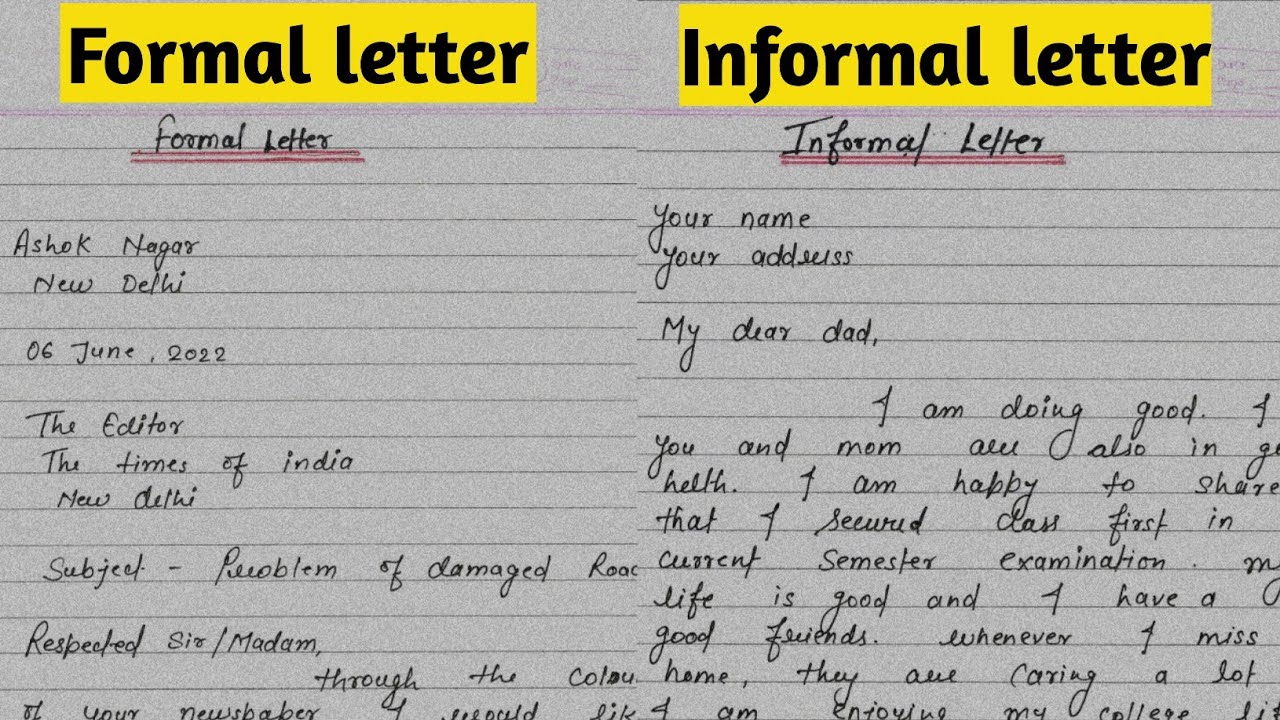 Formal letter
Formal Letter
Ashok Nagar
New Delhi
06 June, 2022
The Editor
The times of india
New delhi
Subject - Problem of damaged Road
Respected Sir/Madam,
through the colou
of your newspaper I would lik
Informal letter
Informal Letter
Your name
Your address
My dear dad,
I am doing good. I
you and mom are also in go
helth. I am happy to share
that I secured class first in
current semester examination. my
life is good and I have a
good friends. whenever I miss
home, they are caring a lot
I am enjoying my college lif